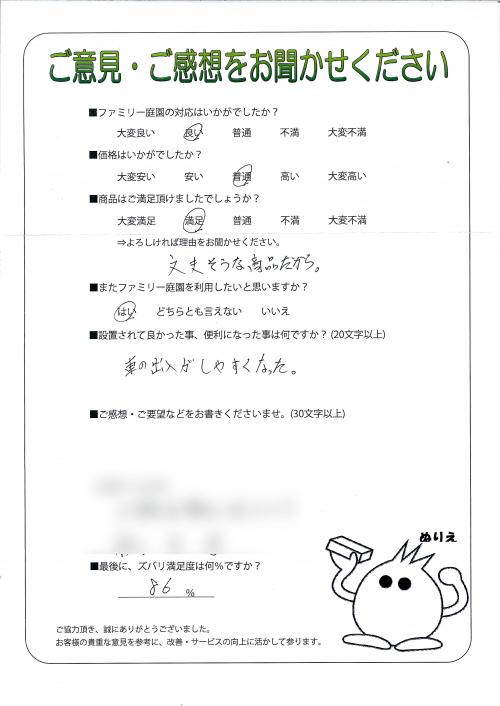 ご意見・ご感想をお聞かせください
■ファミリー庭園の対応はいかがでしたか？
大変良い 良い 普通 不満 大変不満
■価格はいかがでしたか？
大変安い 安い 普通 高い 大変高い
■商品はご満足頂けましたでしょうか？
大変満足 満足 普通 不満 大変不満
⇒よろしければ理由をお聞かせください。
丈夫そうな商品だから。
■またファミリー庭園を利用したいと思いますか？
はい どちらとも言えない いいえ
■設置されて良かった事、便利になった事は何ですか？(20文字以上)
車の出入がしやすくなった。
■ご感想・ご要望などをお書きくださいませ。(30文字以上)
ぬりえ
■最後に、ズバリ満足度は何％ですか？
86 %
ご協力頂き、誠にありがとうございました。
お客様の貴重な意見を参考に、改善・サービスの向上に活かして参ります。